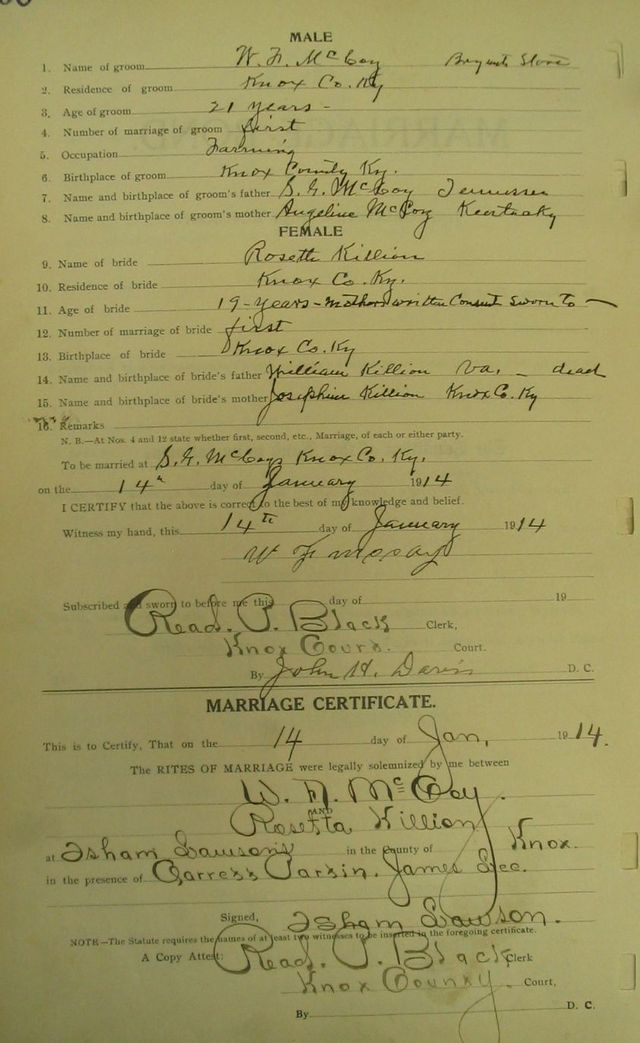 MALE
1. Name of groom W. F. McCoy Bryants Store
2. Residence of groom Knox Co. Ky
3. Age of groom 21 years -
4. Number of marriage of groom first
5. Occupation Farming
6. Birthplace of groom Knox County Ky.
7. Name and birthplace of groom's father S. F. McCoy Tennessee
8. Name and birthplace of groom's mother Angeline McCoy Kentucky
FEMALE
9. Name of bride Rosetti Killion
10. Residence of bride Knox Co. Ky.
11. Age of bride 19 - years - Mothers written Consent Sworn to —
12. Number of marriage of bride first
13. Birthplace of bride Knox Co. Ky
14. Name and birthplace of bride's father William Killion Va. - dead
15. Name and birthplace of bride's mother Josephine Killion Knox Co. Ky
16. Remarks
N. B.—At Nos. 4 and 12 state whether first, second, etc., Marriage, of each or either party.
To be married at S. F. McCoys Knox Co. Ky.
on the 14th day of January 1914
I CERTIFY that the above is correct to the best of my knowledge and belief.
Witness my hand, this 14th day of January 1914
W F mccoy
Subscribed and sworn to before me this day of 19
Read. P. Black Clerk,
Knox County Court.
By John H. Davis D. C.
MARRIAGE CERTIFICATE.
This is to Certify, That on the 14 day of Jan, 1914.
The RITES OF MARRIAGE were legally solemnized by me between
W. F. McCoy.
AND
Rosetta Killion
at Isham Lawsons in the County of Knox.
in the presence of James Lee.
Signed, Isham Lawson.
NOTE—The Statute requires the names of at least two witnesses to be inserted in the foregoing certificate.
A Copy Attest: Read. P. Black Clerk
Knox County Court,
By D. C.